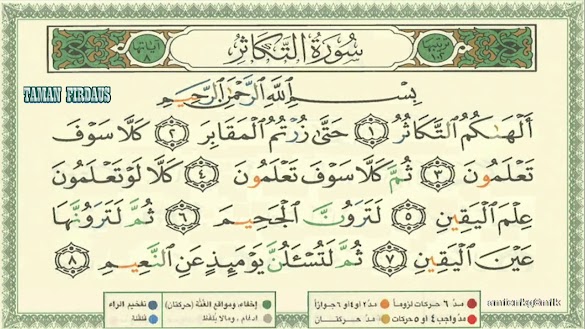 ترتيبها ١٠٢
سُورَةُ التَّكَاثُرِ
آياتها ٨
TAMAN FIRDAUS
بِسْمِ اللَّهِ الرَّحْمَٰنِ الرَّحِيمِ
أَلْهَىٰكُمُ التَّكَاثُرُ ١ حَتَّىٰ زُرْتُمُ الْمَقَابِرَ ٢ كَلَّا سَوْفَ
تَعْلَمُونَ ٣ ثُمَّ كَلَّا سَوْفَ تَعْلَمُونَ ٤ كَلَّا لَوْ تَعْلَمُونَ
عِلْمَ الْيَقِينِ ٥ لَتَرَوُنَّ الْجَحِيمَ ٦ ثُمَّ لَتَرَوُنَّهَا
عَيْنَ الْيَقِينِ ٧ ثُمَّ لَتُسْـَٔلُنَّ يَوْمَئِذٍ عَنِ النَّعِيمِ ٨
مدّ ٦ حركات لزوماً مدّ ٢ أو ٤ أو ٦ جوازاً إخفاء، ومواقع الغُنَّة (حركتان) تفخيم الراء
مدّ واجب ٤ أو ٥ حركات مدّ حركتان إدغام، وما لا يُلفَظ قلقلة